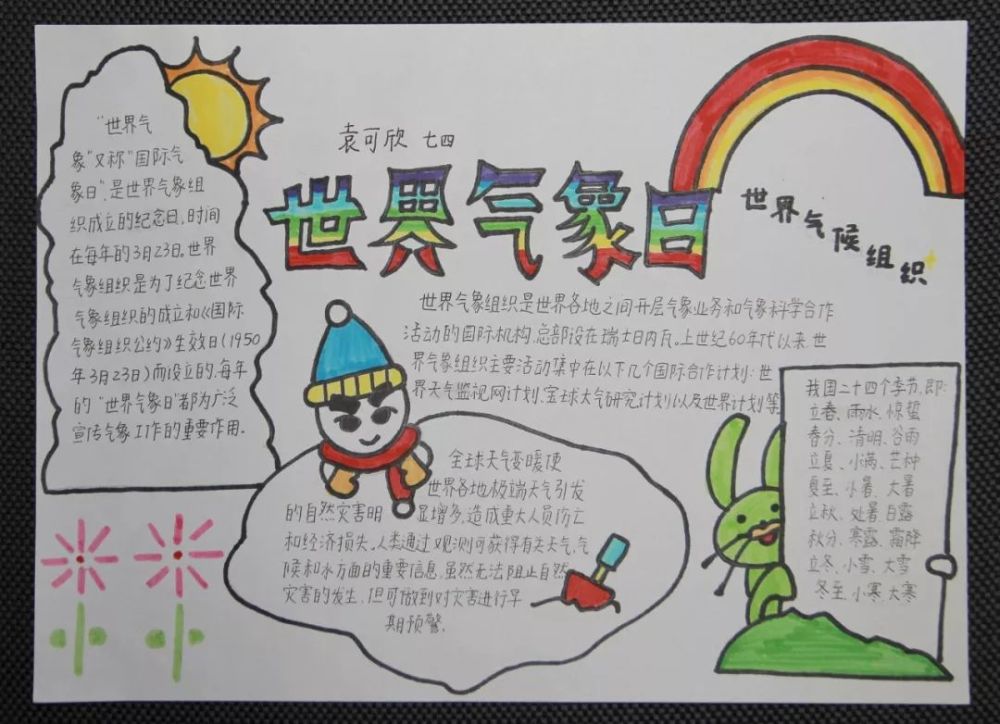 "世界气
象"又称"国际气
象日",是世界气象组
织成立的纪念日,时间
在每年的3月23日。世界
气象组织是为了纪念世界
气象组织的成立和《国际
气象组织公约》生效日(1950
年3月23日)而设立的,每年
的"世界气象日"都为广泛
宣传气象工作的重要作用.
袁可欣 七四
世界气象日
世界气候组织
世界气象组织是世界各地之间开层气象业务和气象科学合作
活动的国际机构,总部设在瑞士日内瓦。上世纪60年代以来,世
界气象组织主要活动集中在以下几个国际合作计划:世
界天气监视网计划、全球大气研究计划以及世界计划等
全球天气变暖使
世界各地极端天气引发
的自然灾害明显增多,造成重大人员伤亡
和经济损失。人类通过观测可获得有关天气,气
候和水方面的重要信息,虽然无法阻止自然
灾害的发生,但可做到对灾害进行早
期预警.
我国二十四个季节,即:
立春、雨水、惊蛰
春分、清明、谷雨
立夏、小满、芒种
夏至、小暑、大暑
立秋、处暑、白露
秋分、寒露、霜降
立冬、小雪、大雪
冬至、小寒、大寒